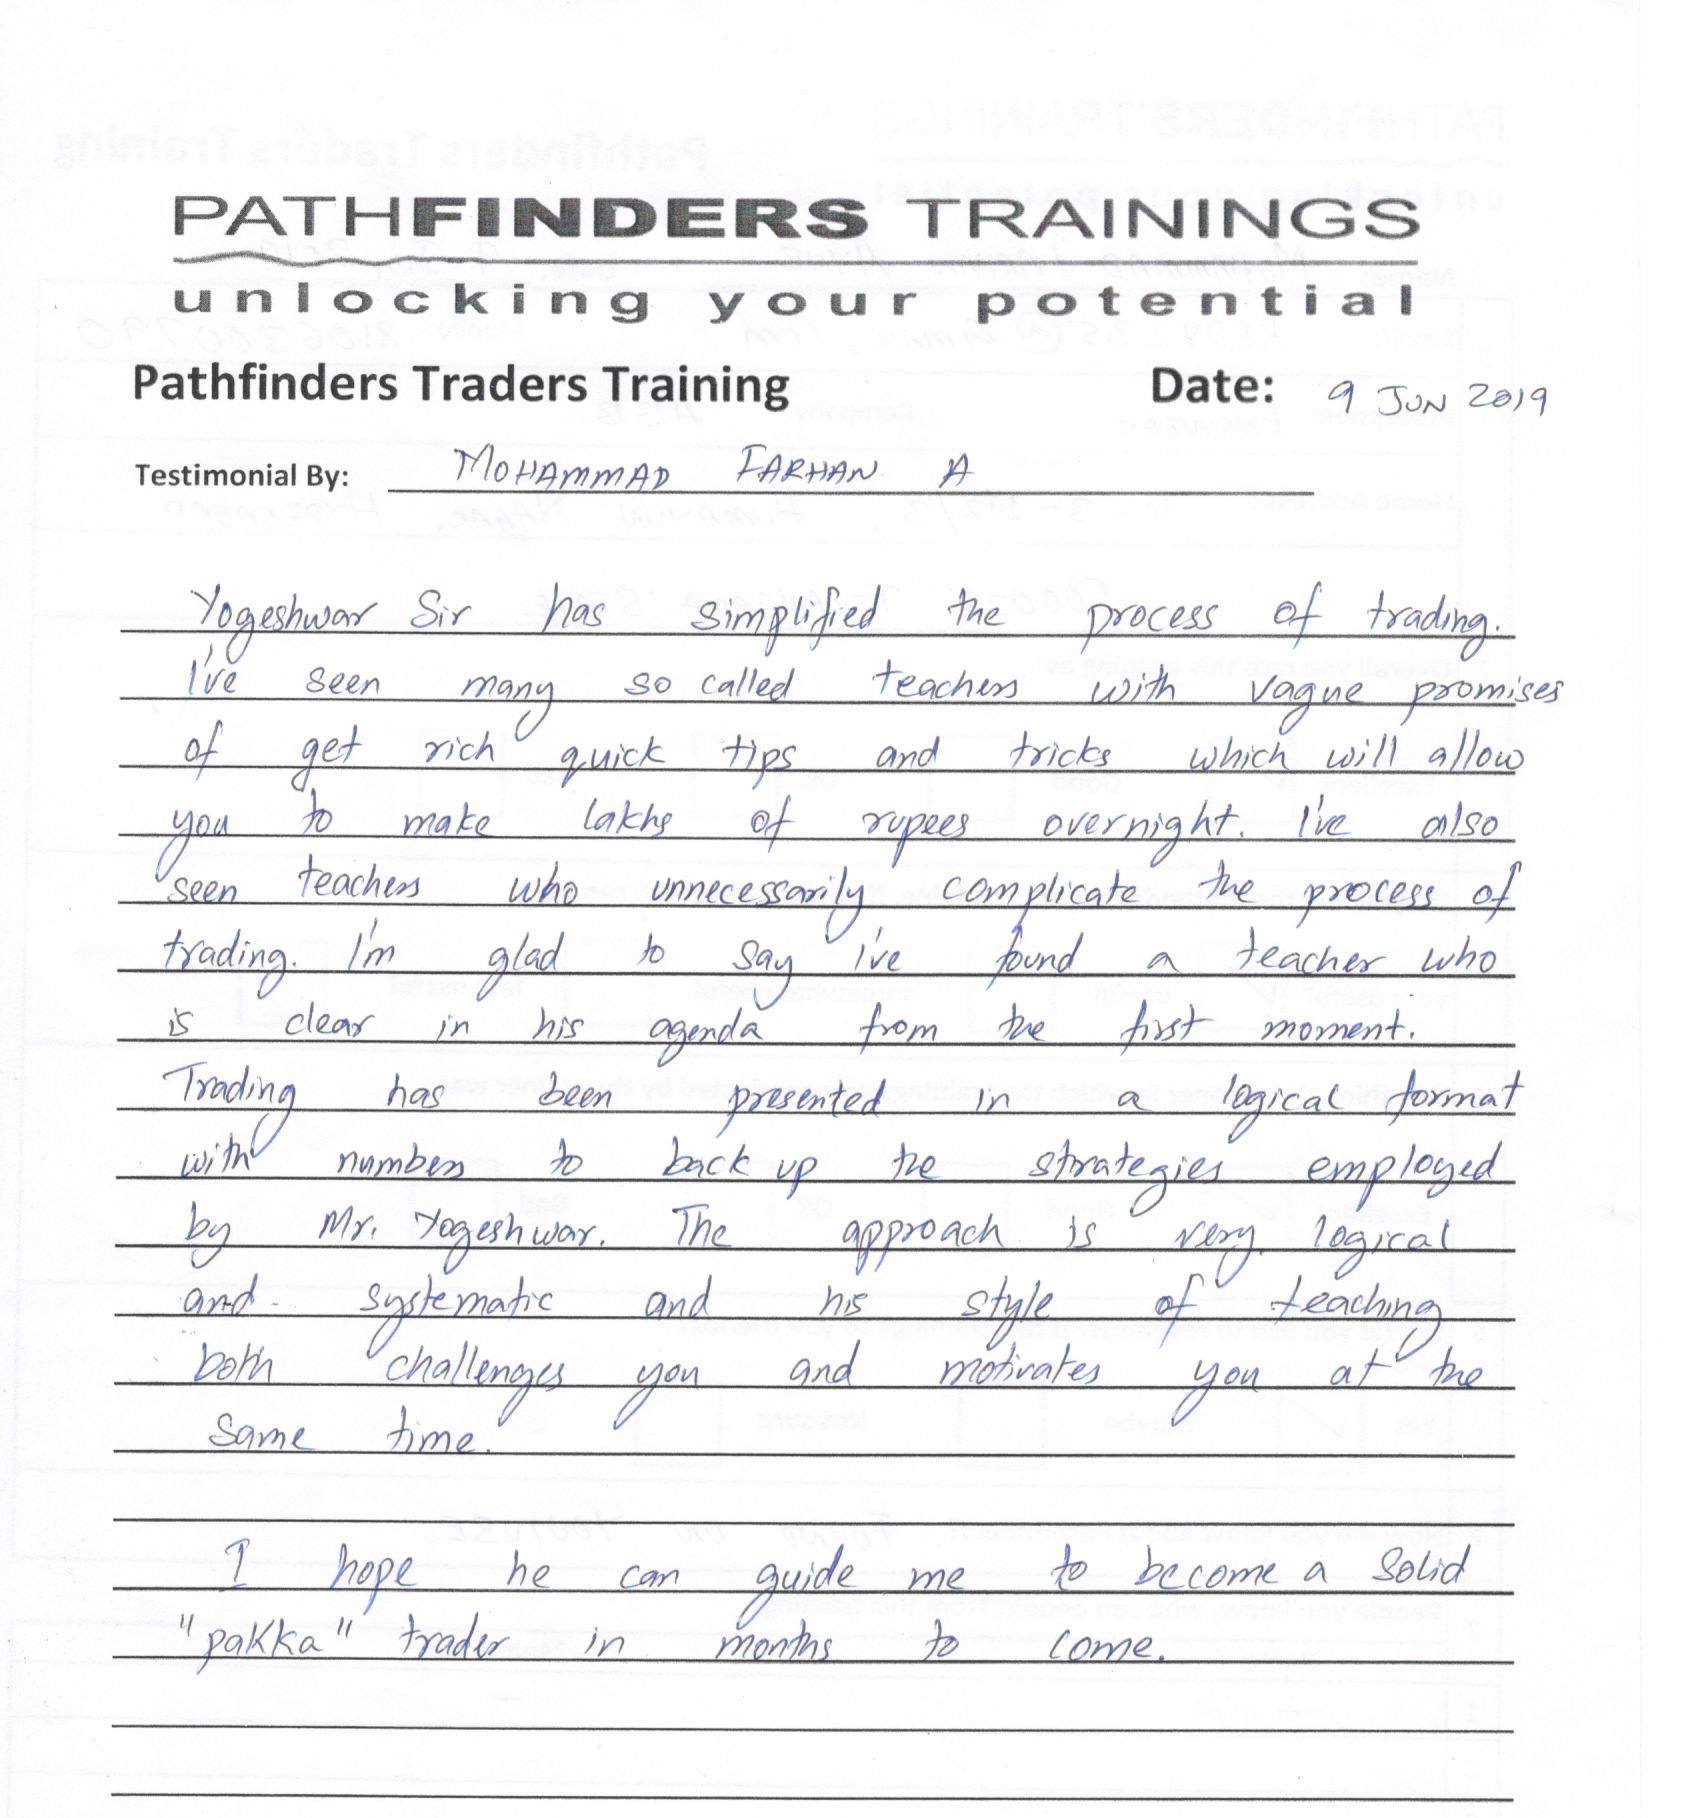 PATHFINDERS TRAININGS
unlocking your potential
Pathfinders Traders Training Date: 9 JUN 2019
Testimonial By: MOHAMMAD FARHAN A
Yogeshwar Sir has simplified the process of trading.
I've seen many so called teachers with vague promises
of get rich quick tips and tricks which will allow
you to make lakhs of rupees overnight. I've also
seen teachers who unnecessarily complicate the process of
trading. I'm glad to say i've found a teacher who
is clear in his agenda from the first moment.
Trading has been presented in a logical format
with numbers to back up the strategies employed
by Mr. Yogeshwar. The approach is very logical
and systematic and his style of teaching
both challenges you and motivates you at the
same time.
I hope he can guide me to become a solid
"pakka" trader in months to come.